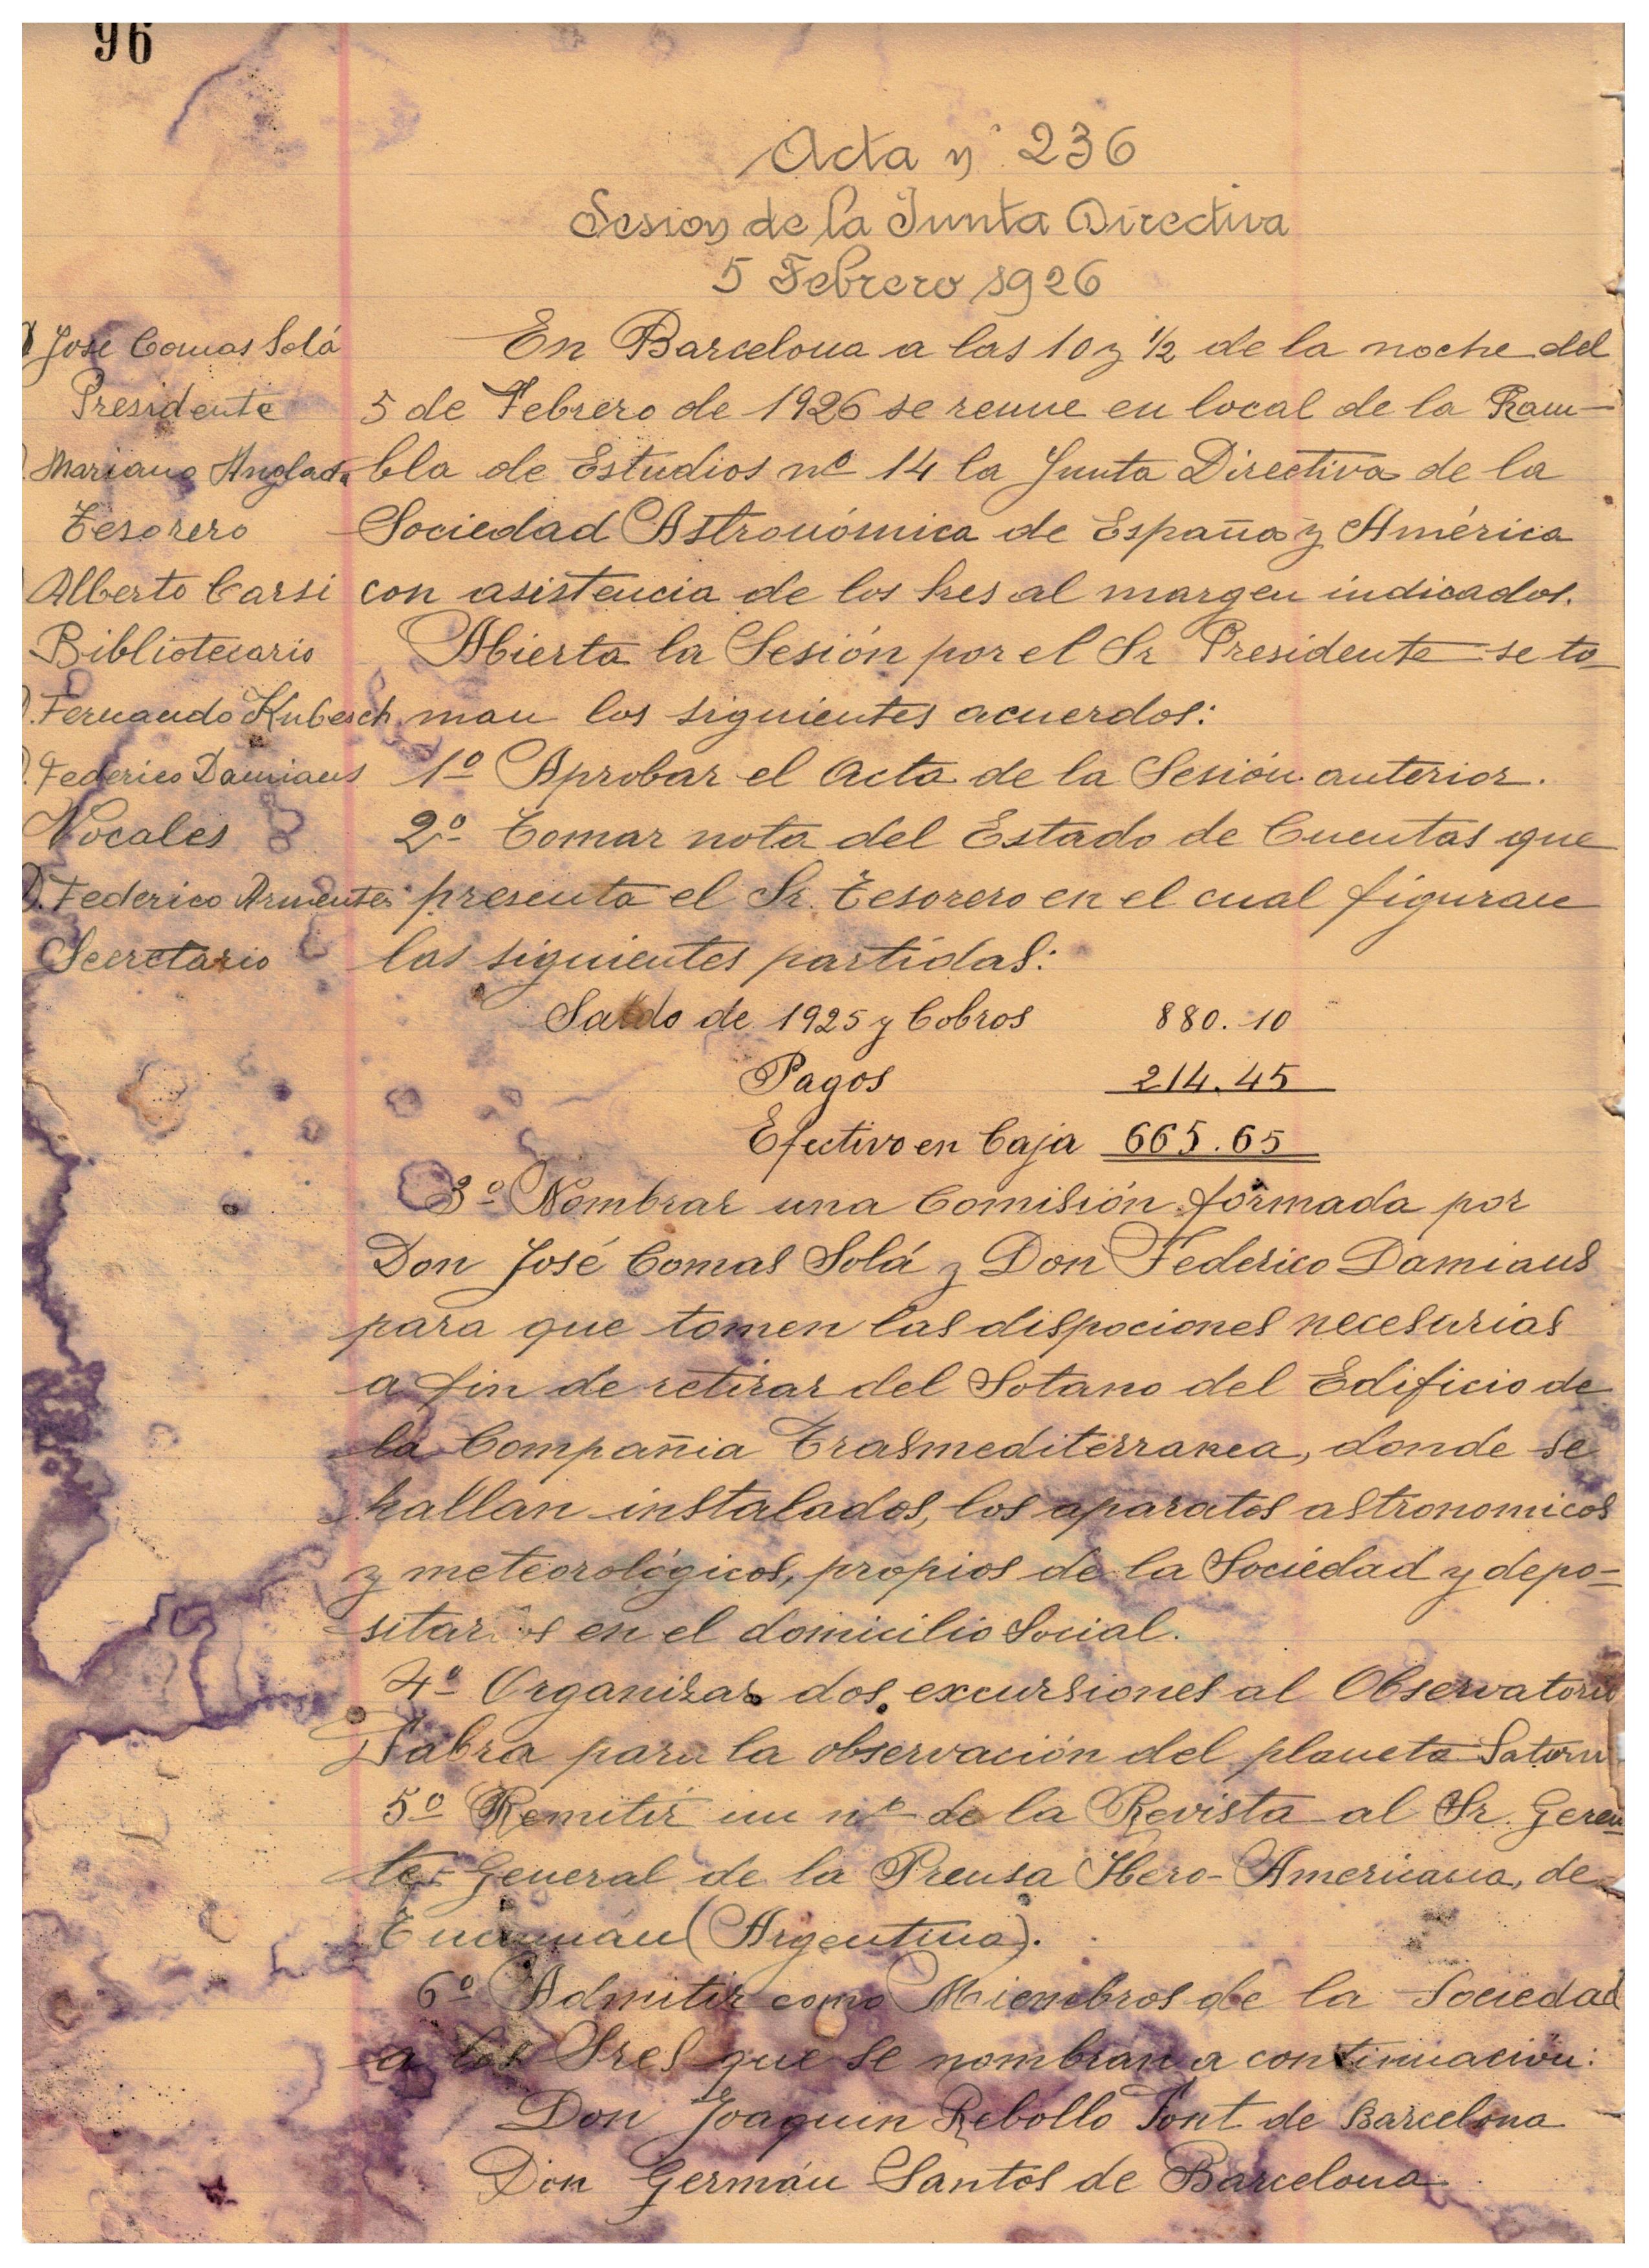 96
Acta nº 236
Sesion de la Junta Directiva
5 Febrero 1926
D. José Comas Solá
Presidente
D. Mariano Anglada
Tesorero
D. Alberto Carsi
Bibliotecario
D. Fernando Kubesch
D. Federico Damians
Vocales
D. Federico Armenter
Secretario
En Barcelona a las 10 y ½ de la noche del
5 de Febrero de 1926 se reune en local de la Ram-
bla de Estudios nº 14 la Junta Directiva de la
Sociedad Astronómica de España y América
con asistencia de los Sres al margen indicados.
Abierta la Sesión por el Sr Presidente se to-
man los siguientes acuerdos:
1º Aprobar el Acta de la Sesión anterior.
2º Tomar nota del Estado de Cuentas que
presenta el Sr. Tesorero en el cual figuran
las siguientes partidas:
Saldo de 1925 y Cobros 880.10
Pagos 214.45
Efectivo en Caja 665.65
3º Nombrar una Comisión formada por
Don José Comas Solá y Don Federico Damians
para que tomen las dispociones necesarias
a fin de retirar del Sotano del Edificio de
la Compañia Trasmediterranea, donde se
hallan instalados, los aparatos astronomicos
y meteorológicos, propios de la Sociedad y depo-
sitarlos en el domicilio Social.
4º Organizar dos excursiones al Observatorio
Fabra para la observación del planeta Saturno
5º Remitir un nº de la Revista al Sr. Geren-
te General de la Prensa Ibero-Americana, de
Tucumán (Argentina).
6º Admitir como Miembros de la Sociedad
a los Sres que se nombran a continuación:
Don Joaquin Rebollo Font de Barcelona
Don Germán Santos de Barcelona